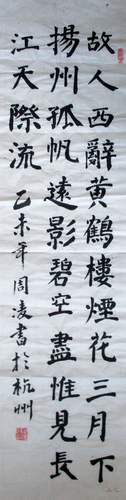 故人西辭黃鶴樓煙花三月下
揚州孤帆遠影碧空盡惟見長
江天際流乙未年周凌書於杭州